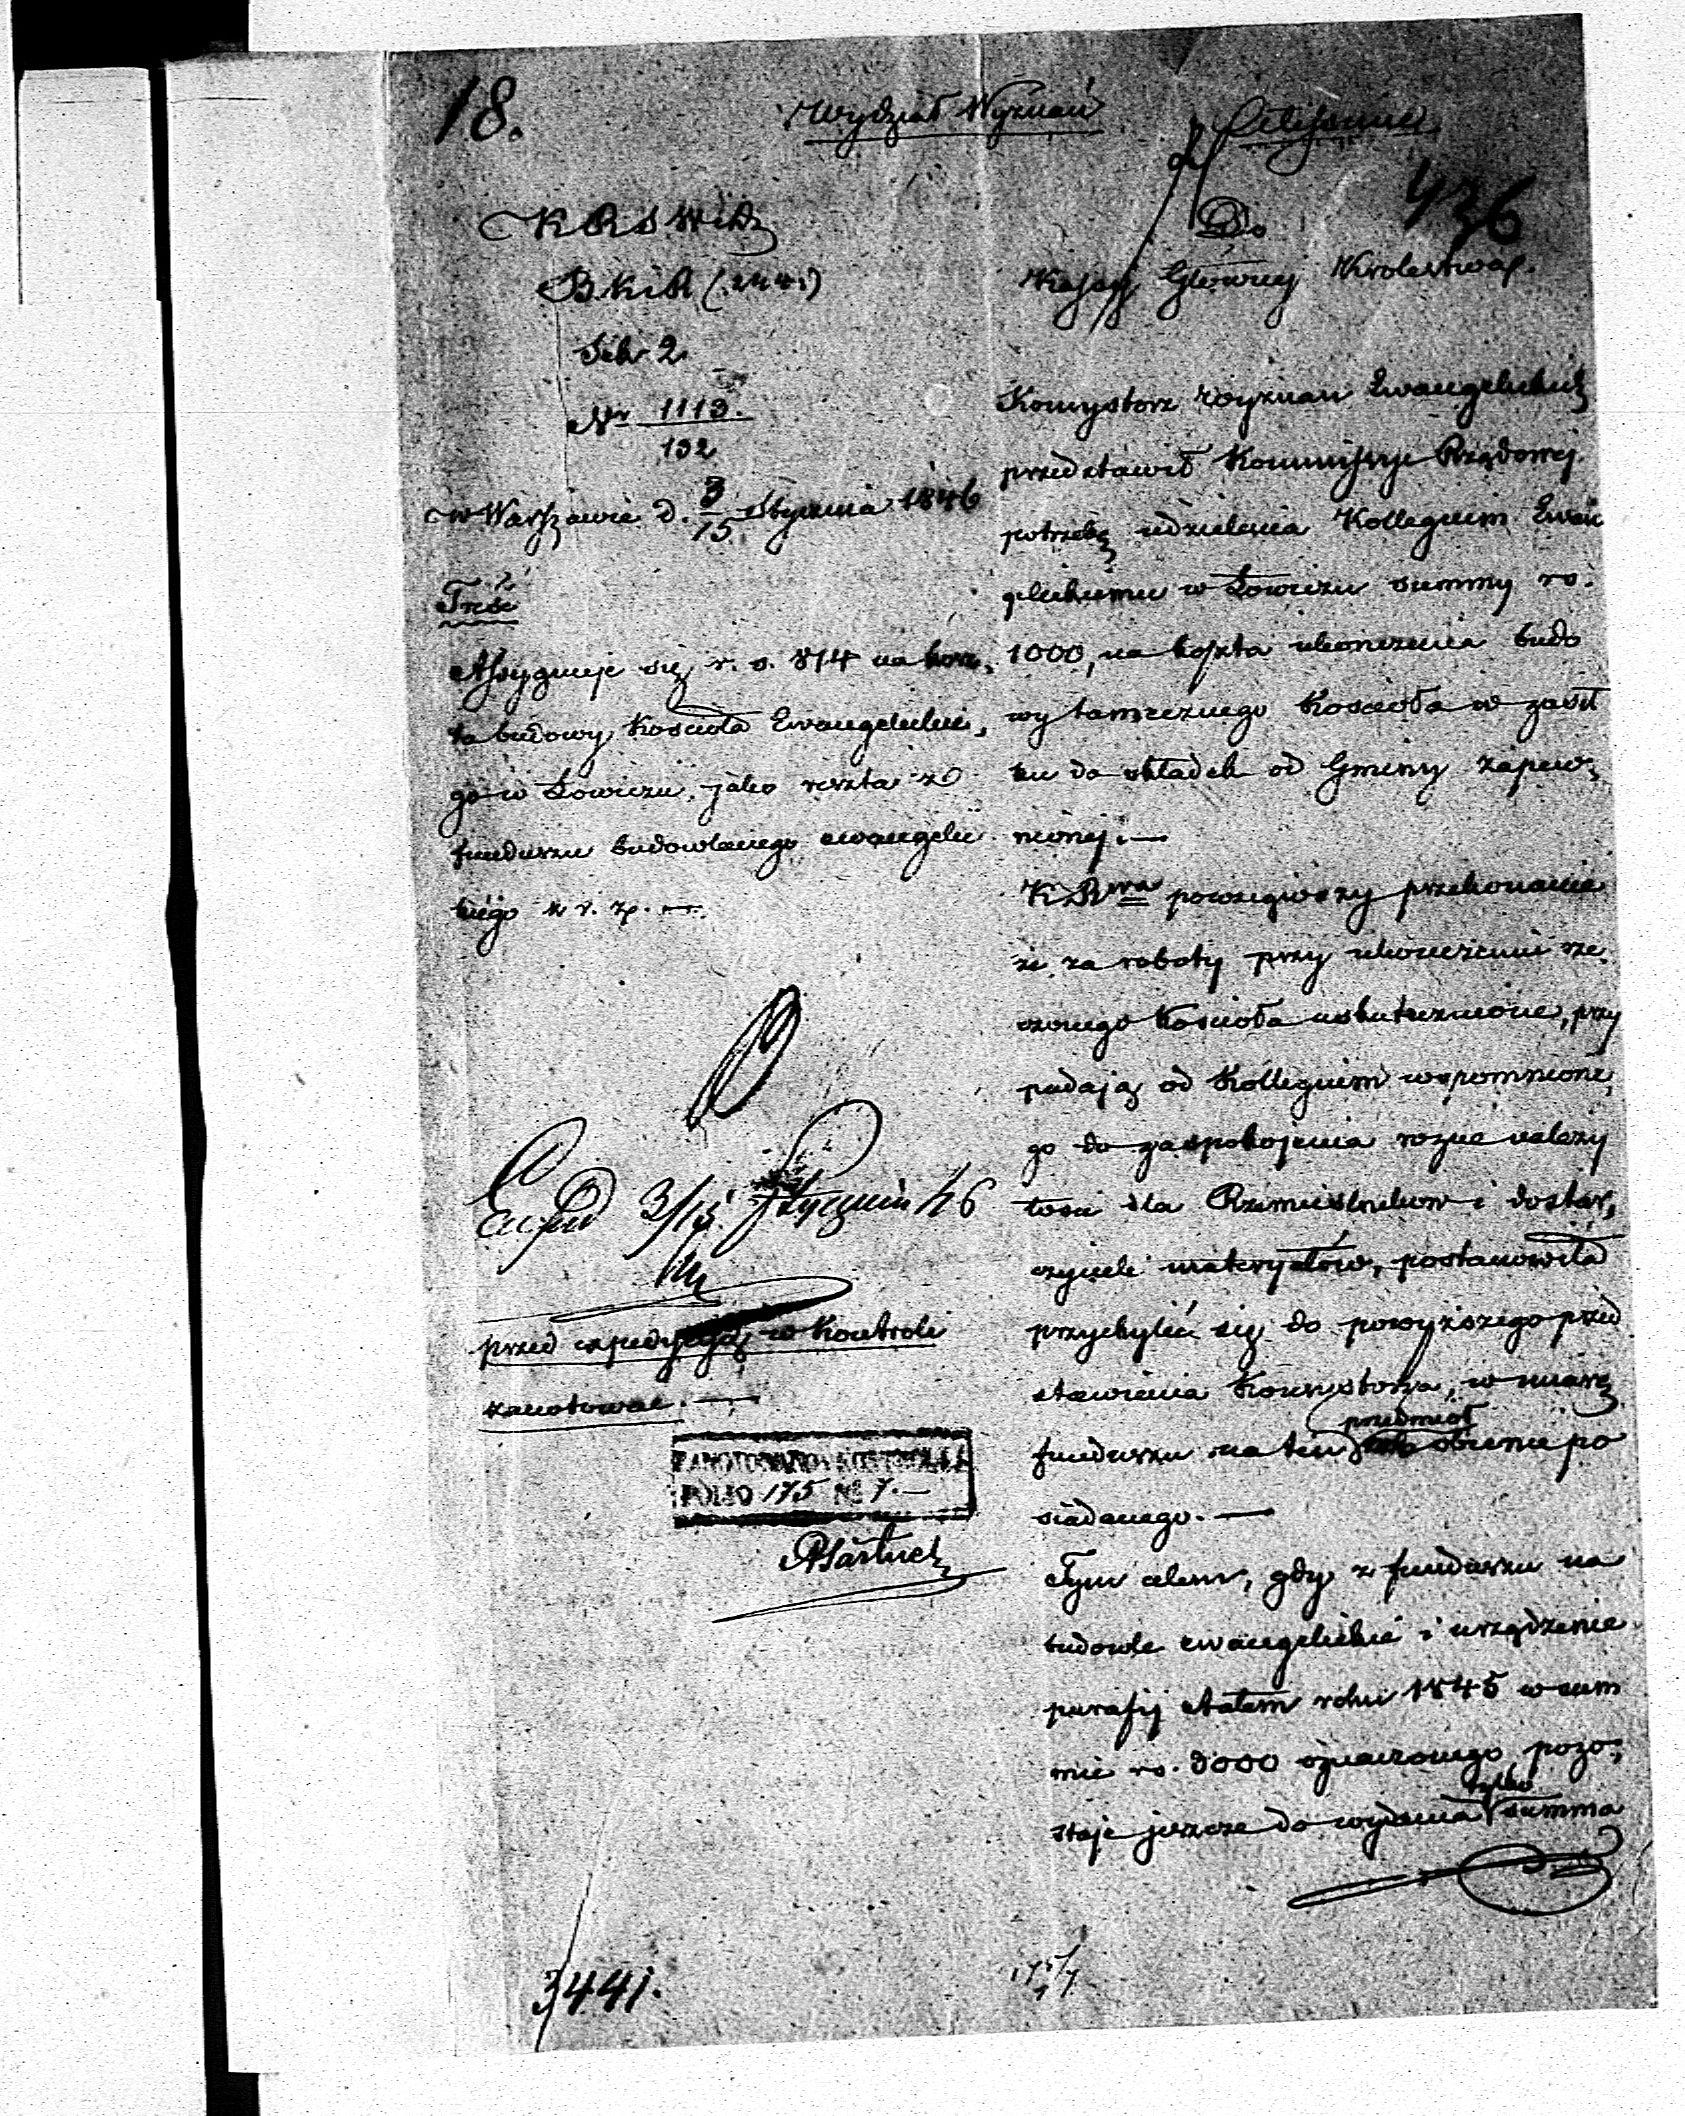 18.
Wydział Wyznań
436
K R S W i D
B K i R (:244:)
Sek. 2.
Nr 1113.
132
w Warszawie d. 3/15 Stycznia 1846
Treść
Assygnuje się r. s. 814 na kosz,
ta budowy Kościoła Ewangelickie,
go w Łowiczu, jako reszta z
funduszu budowlanego ewangelic
kiego z r. z. —
Exped 3/15 Stycznia 46
przed expedycyą w Kontroli
zanotować. —
ZANOTOWANO W KONTROLLI
FOLIO 175 No 7. —
Do
Kassy Głównej Królestwa.
Konsystorz wyznań Ewangelickich
przedstawił Kommissyi Rządowej
potrzebę udzielenia Kollegium Ewan
gelickiemu w Łowiczu summy rs.
1000, na koszta ukończenia budo
wy tamecznego Kościoła w zasił
ku do składek od Gminy zapew,
nionej. —
K Rwa powziąwszy przekonanie
że za roboty przy ukończeniu rze,
czonego Kościoła uskutecznione, przy
padają od Kollegium wspomnione,
go do zaspokojenia rożne należy
tości dla Rzemieślników i dostar,
czycieli materyałów, postanowiła
przychylić się do powyższego przed
stawienia Konsystorza, w miarę
funduszu na ten przedmiot obecnie po
siadanego. —
Tym celem, gdy z funduszu na
budowle ewangelickie i urządzenie
parafij etatem roku 1845 w sum
mie rs. 3000 oznaczonego, pozo,
staje jeszcze do wydania tylko summa
3441.
175/7